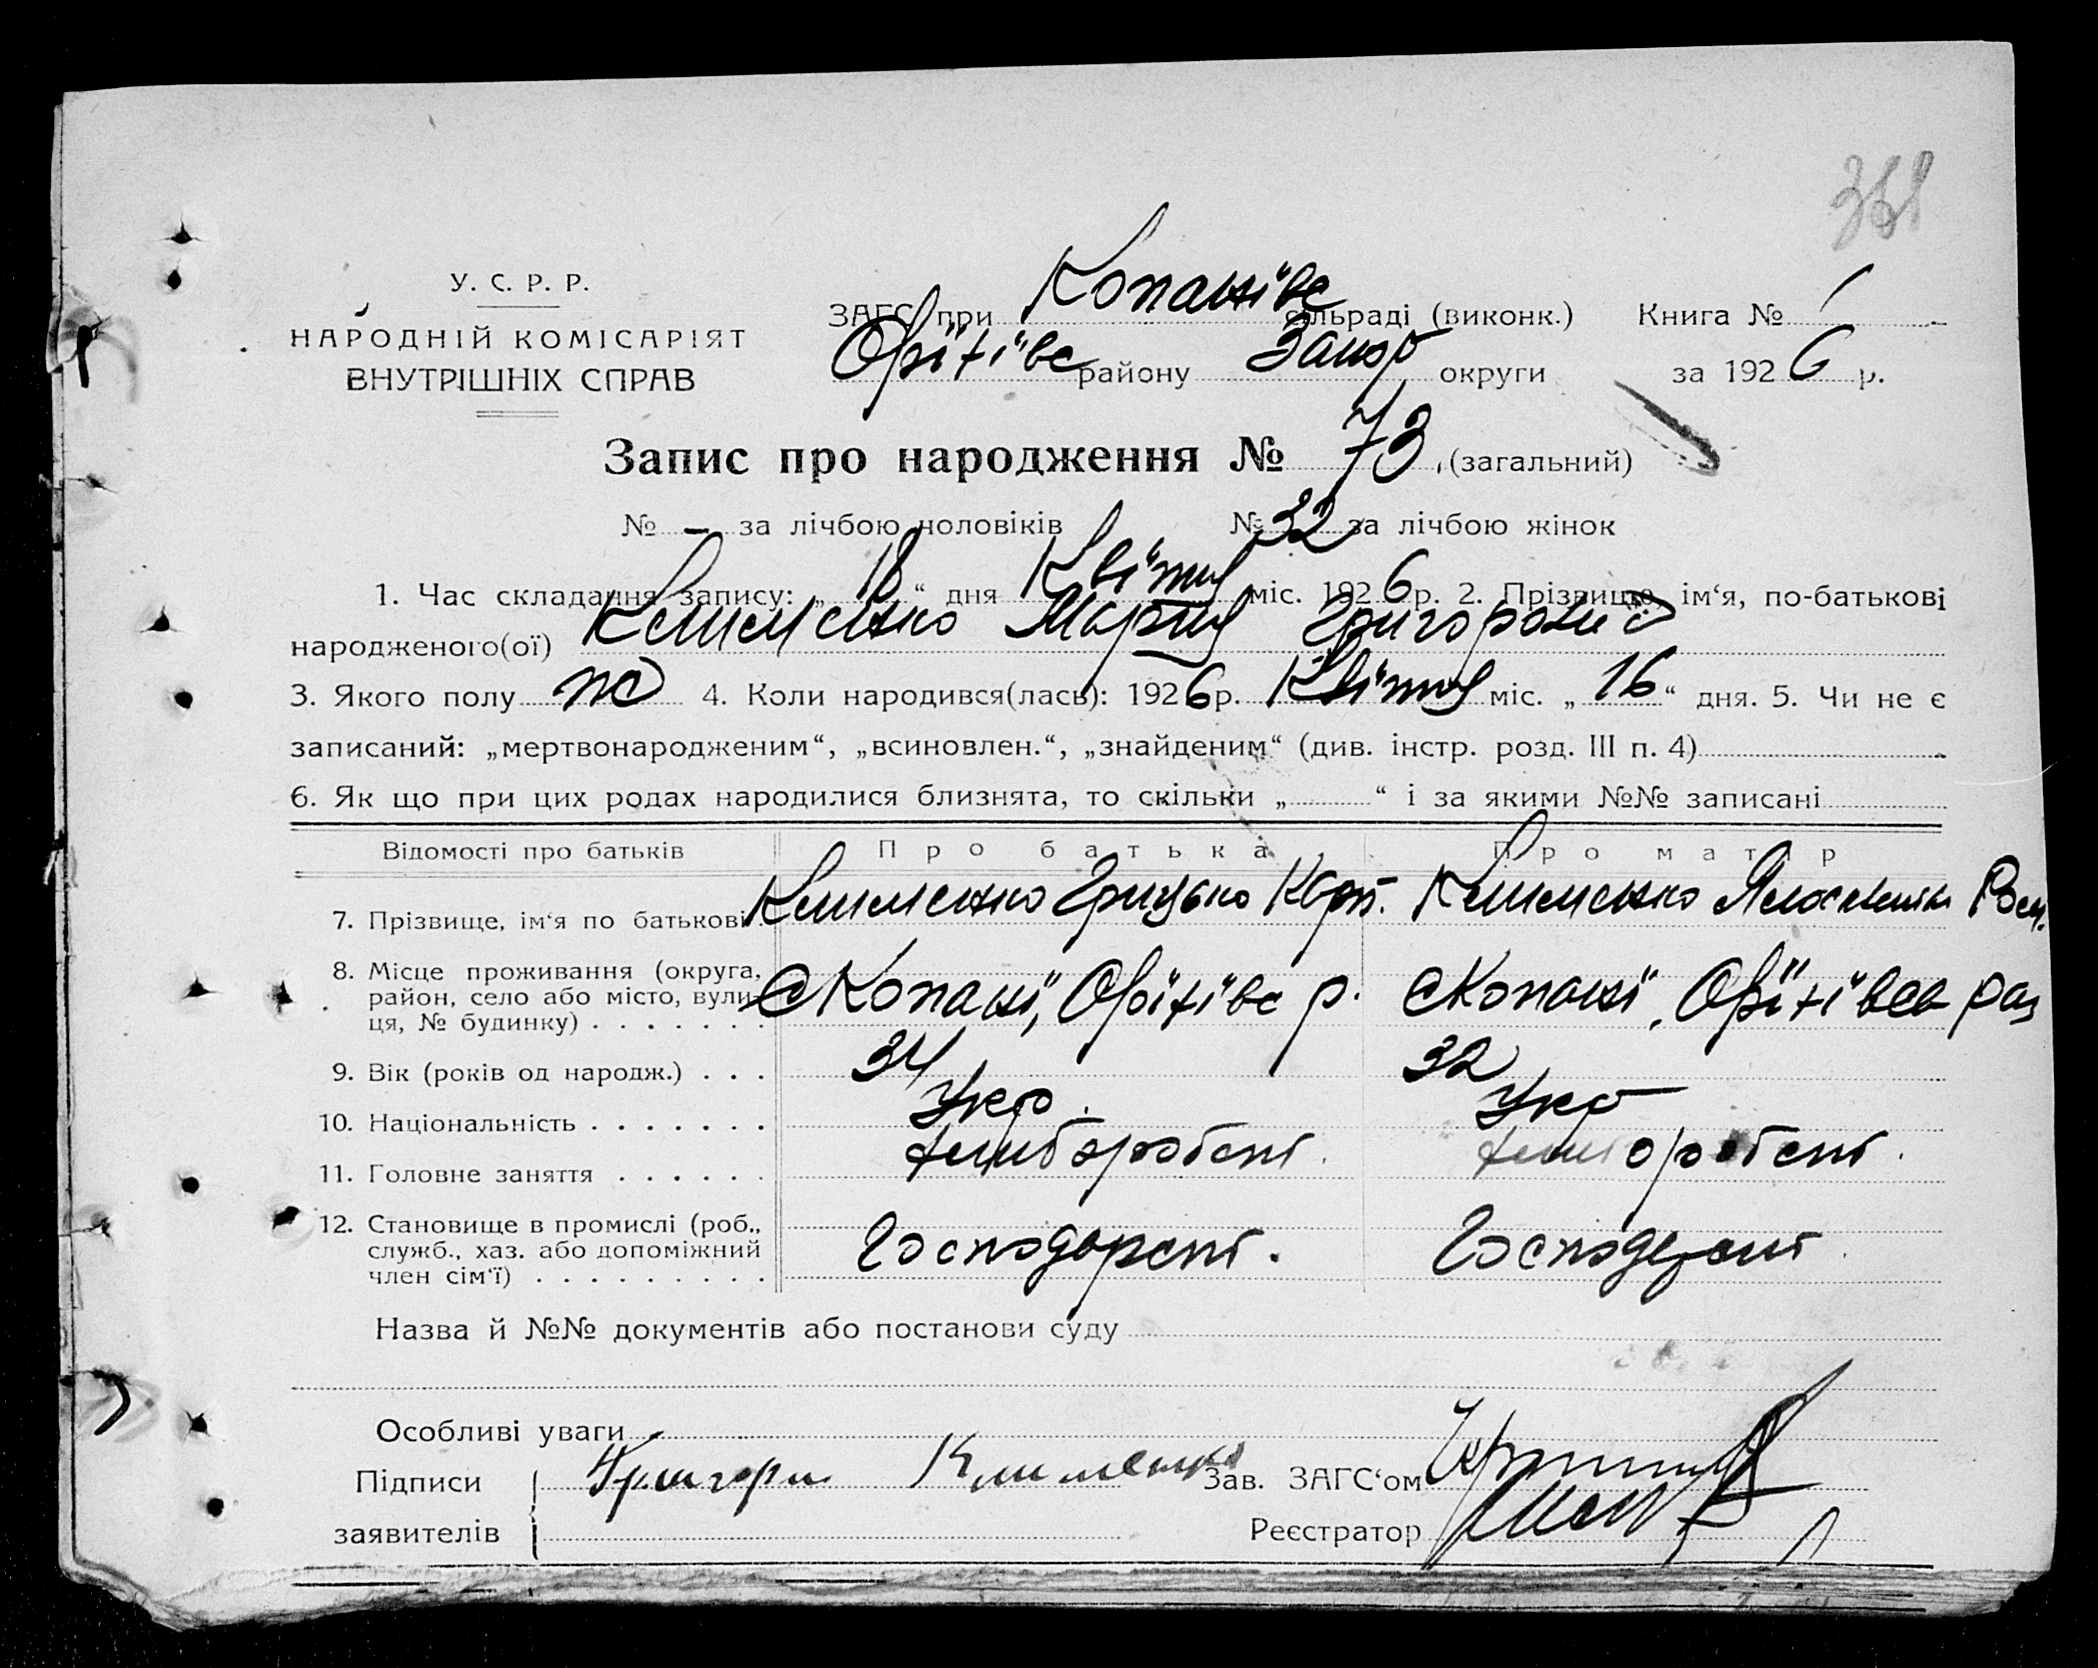 У. С. Р. Р.
НАРОДНІЙ КОМІСАРІЯТ
ВНУТРІШНІХ СПРАВ
ЗАГС при Копанівс сільраді (виконк.) Книга № 1
Оріхівс району Запор округи за 1926 р.
Запис про народження № 73 (загальний)
№ - за лічбою чоловіків № 32 за лічбою жінок
1. Час складання запису: „18“ дня Квітня міс. 1926 р. 2. Прізвище, ім‘я, по-батькові
народженого(ої) Клименко Марія Григоровна
3. Якого полу жі 4. Коли народився(лась): 1926 р. Квітня міс. „16“ дня. 5. Чи не є
записаний: „мертвонародженим“, „всиновлен.“, „знайденим“ (див. інстр. розд. III п. 4)
6. Як що при цих родах народилися близнята, то скільки „ “ і за якими №№ записані
Відомості про батьків Про батька Про матір
7. Прізвище, ім‘я по батькові Клименко Грицько Карп. Клименко
8. Місце проживання (округа, район, село або місто, вулиця, № будинку) с Копані, Оріхівс р. с Копані, Оріхівсь рай
9. Вік (років од народж.) 34 32
10. Національність Укр. Укр
11. Головне заняття хлібороб
12. Становище в промислі (роб., служб., хаз. або допоміжний член сім‘ї)
Назва й №№ документів або постанови суду
Особливі уваги
Підписи Григори Клименко Зав. ЗАГС‘ом
заявителів Реєстратор